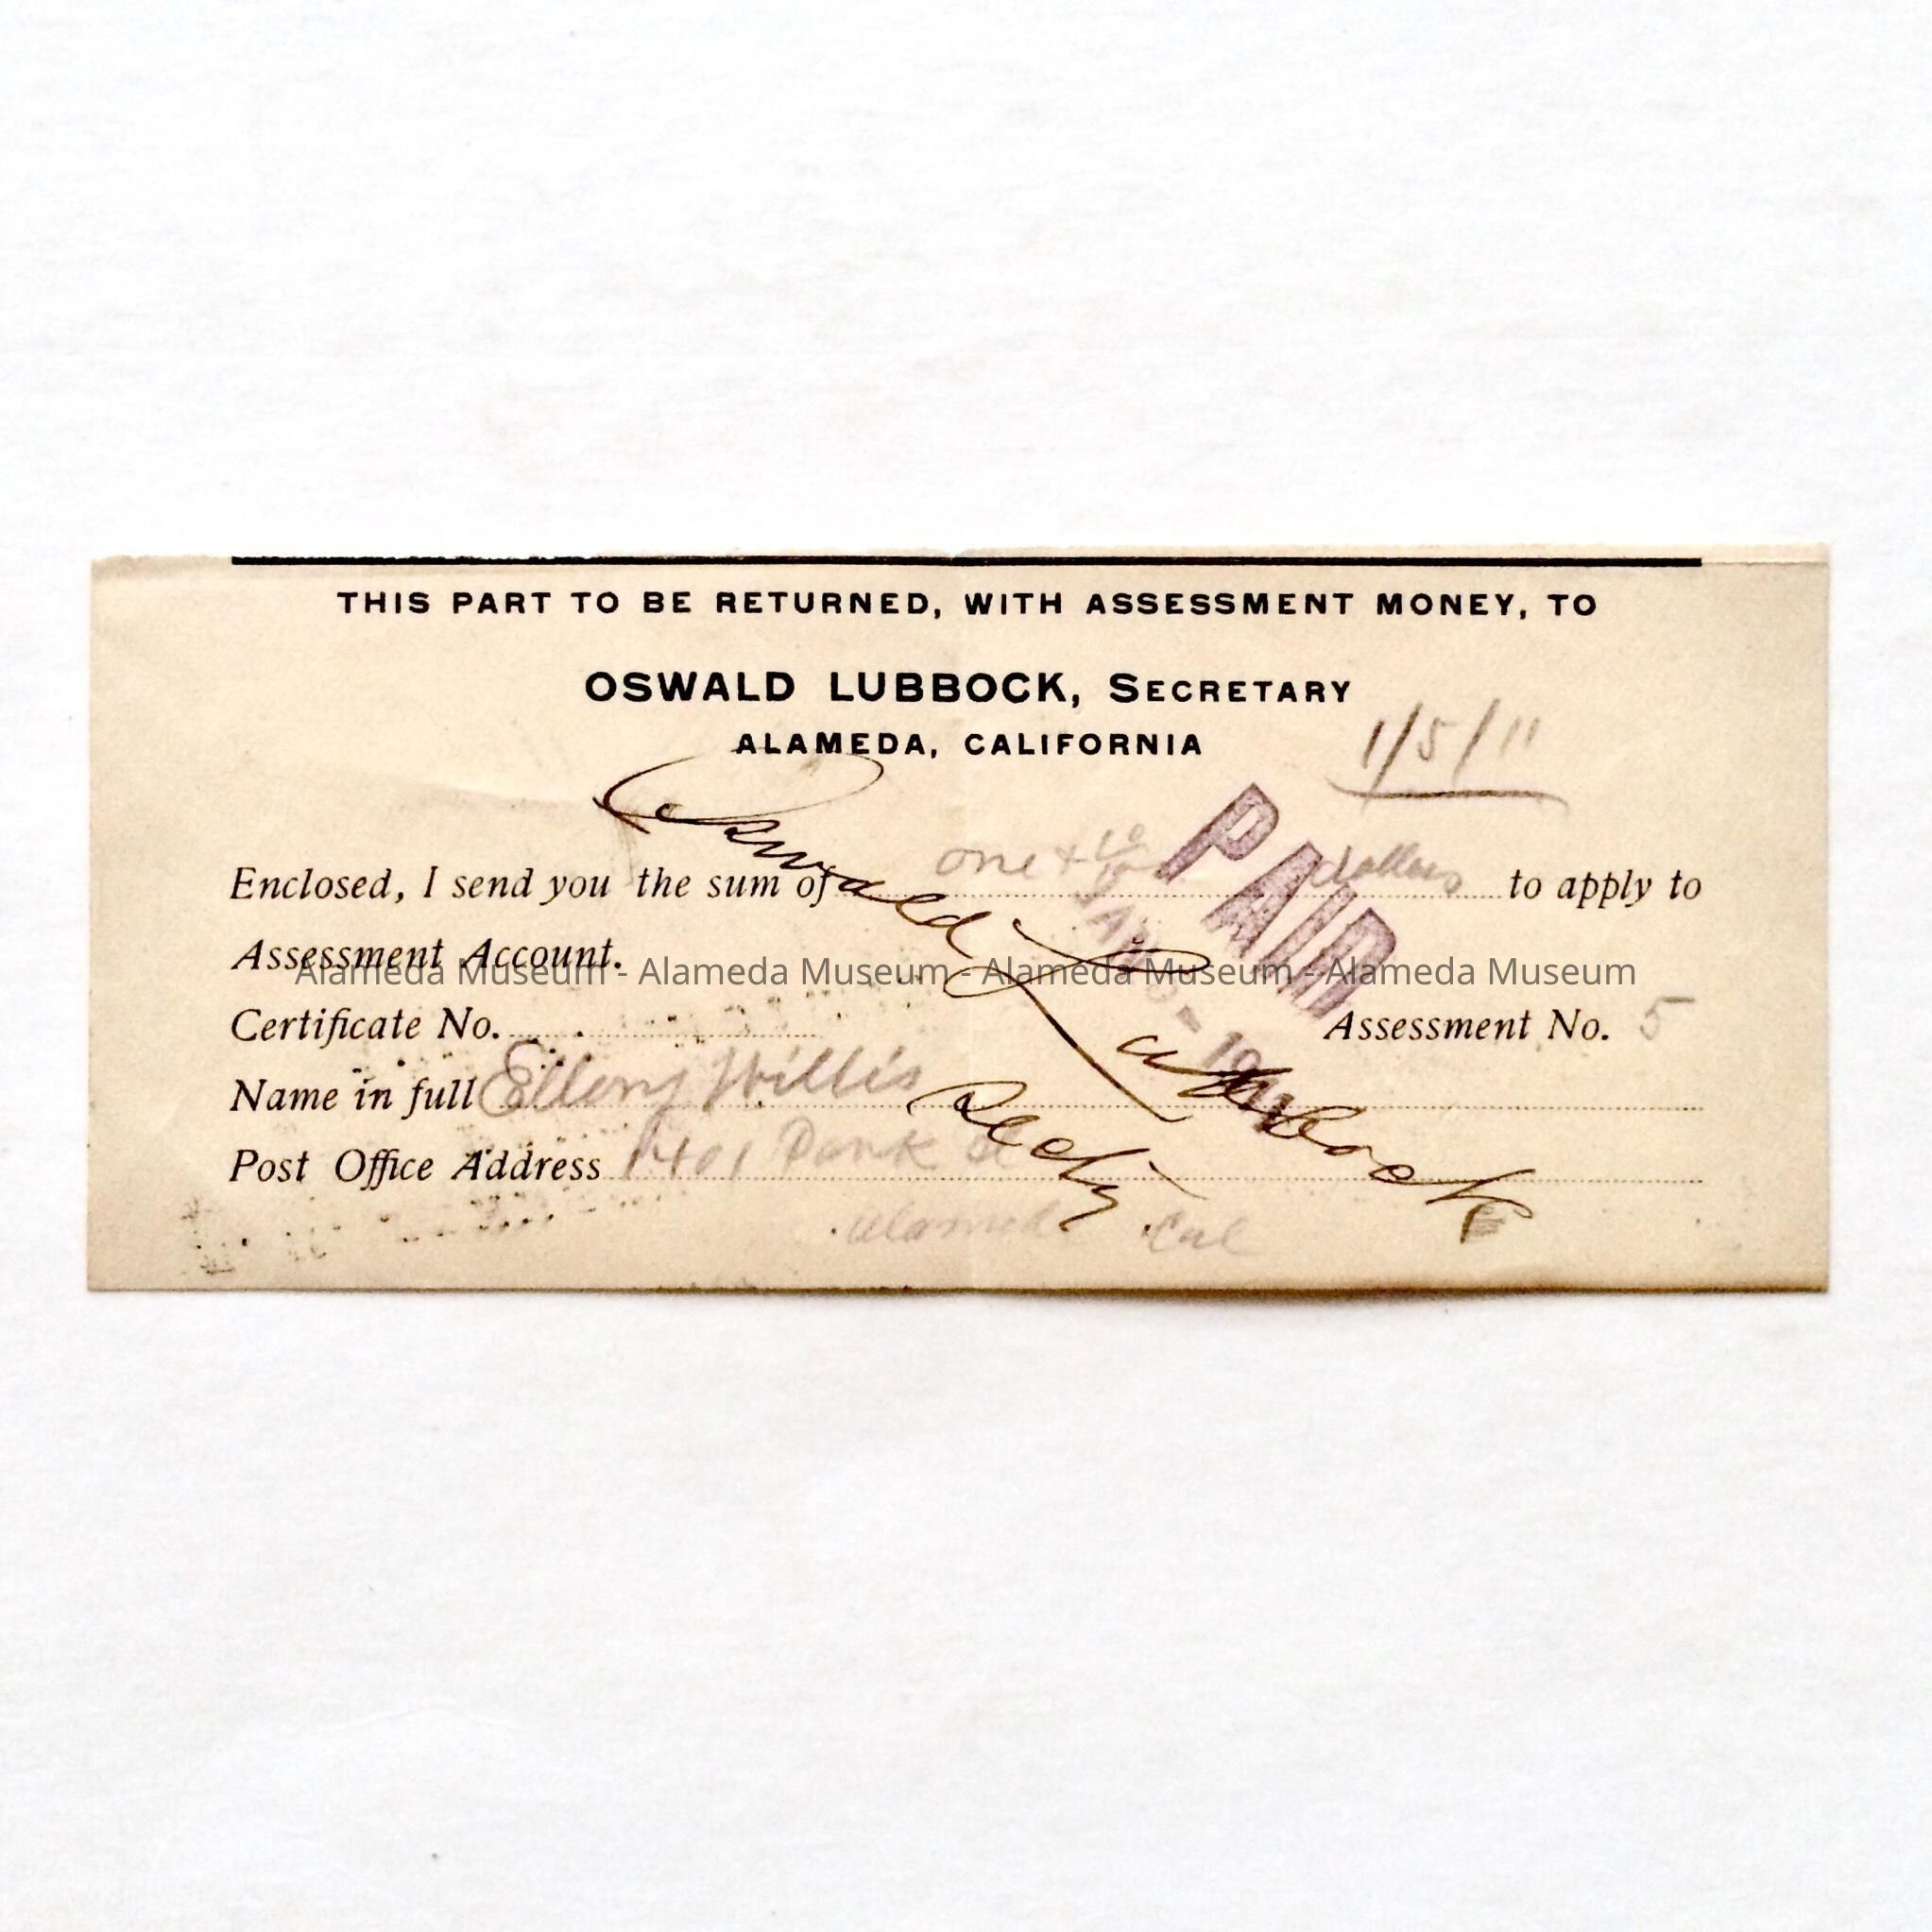 THIS PART TO BE RETURNED, WITH ASSESSMENT MONEY, TO
OSWALD LUBBOCK, SECRETARY
ALAMEDA, CALIFORNIA
1/5/11
Enclosed, I send you the sum of one + 10/100 dollars to apply to
PAID
Assessment Account.
Alameda Museum - Alameda Museum - Alameda Museum - Alameda Museum
Certificate No. Assessment No. 5
Name in full Willis
Post Office Address 1401 Park St
Alameda Cal
Oswald Lubbock
Secty